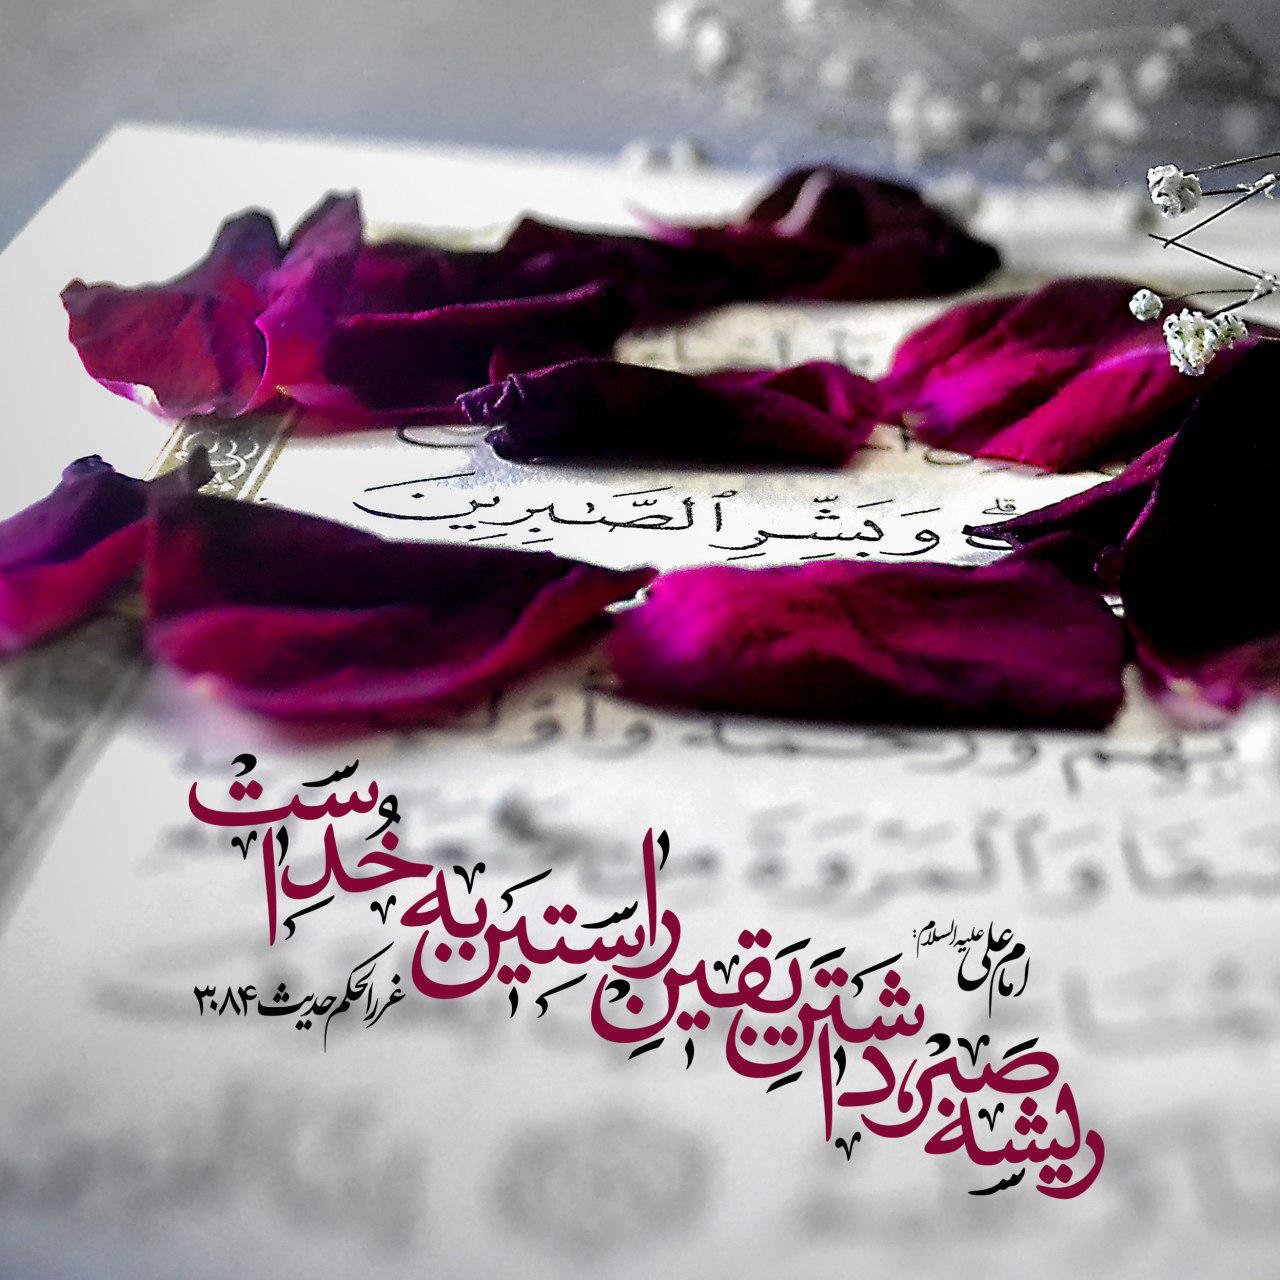 وَبَشِّرِ ٱلصَّـٰبِرِينَ
هِم وَرَحْمَةٌ وَأُو
ٱلْمَرْوَةَ
امام علی علیه السلام:
ریشه صبر، داشتن یقین راستین به خداست
غررالحکم حدیث ۳۰۸۴